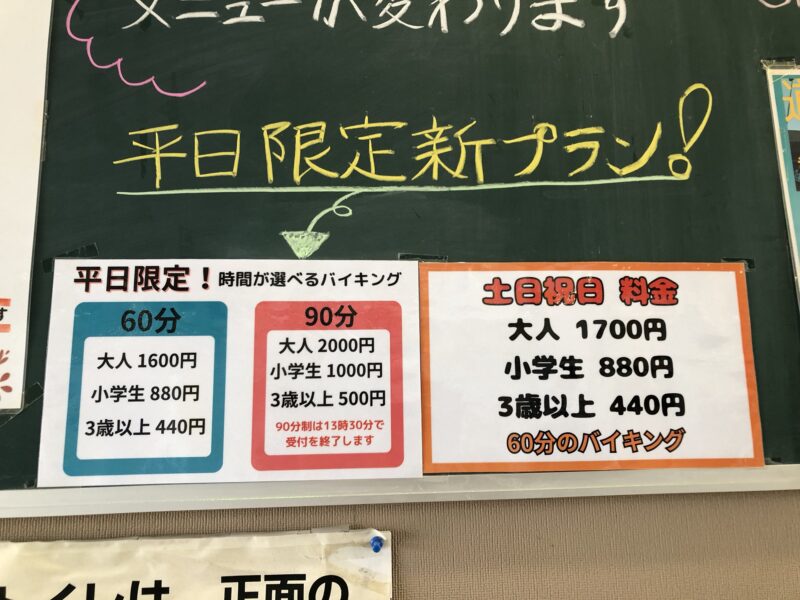 メニューが変わります
平日限定新プラン!
平日限定！時間が選べるバイキング
60分
大人 1600円
小学生 880円
3歳以上 440円
90分
大人 2000円
小学生 1000円
3歳以上 500円
90分制は13時30分で
受付を終了します
土日祝日 料金
大人 1700円
小学生 880円
3歳以上 440円
60分のバイキング
トイレは、正面の